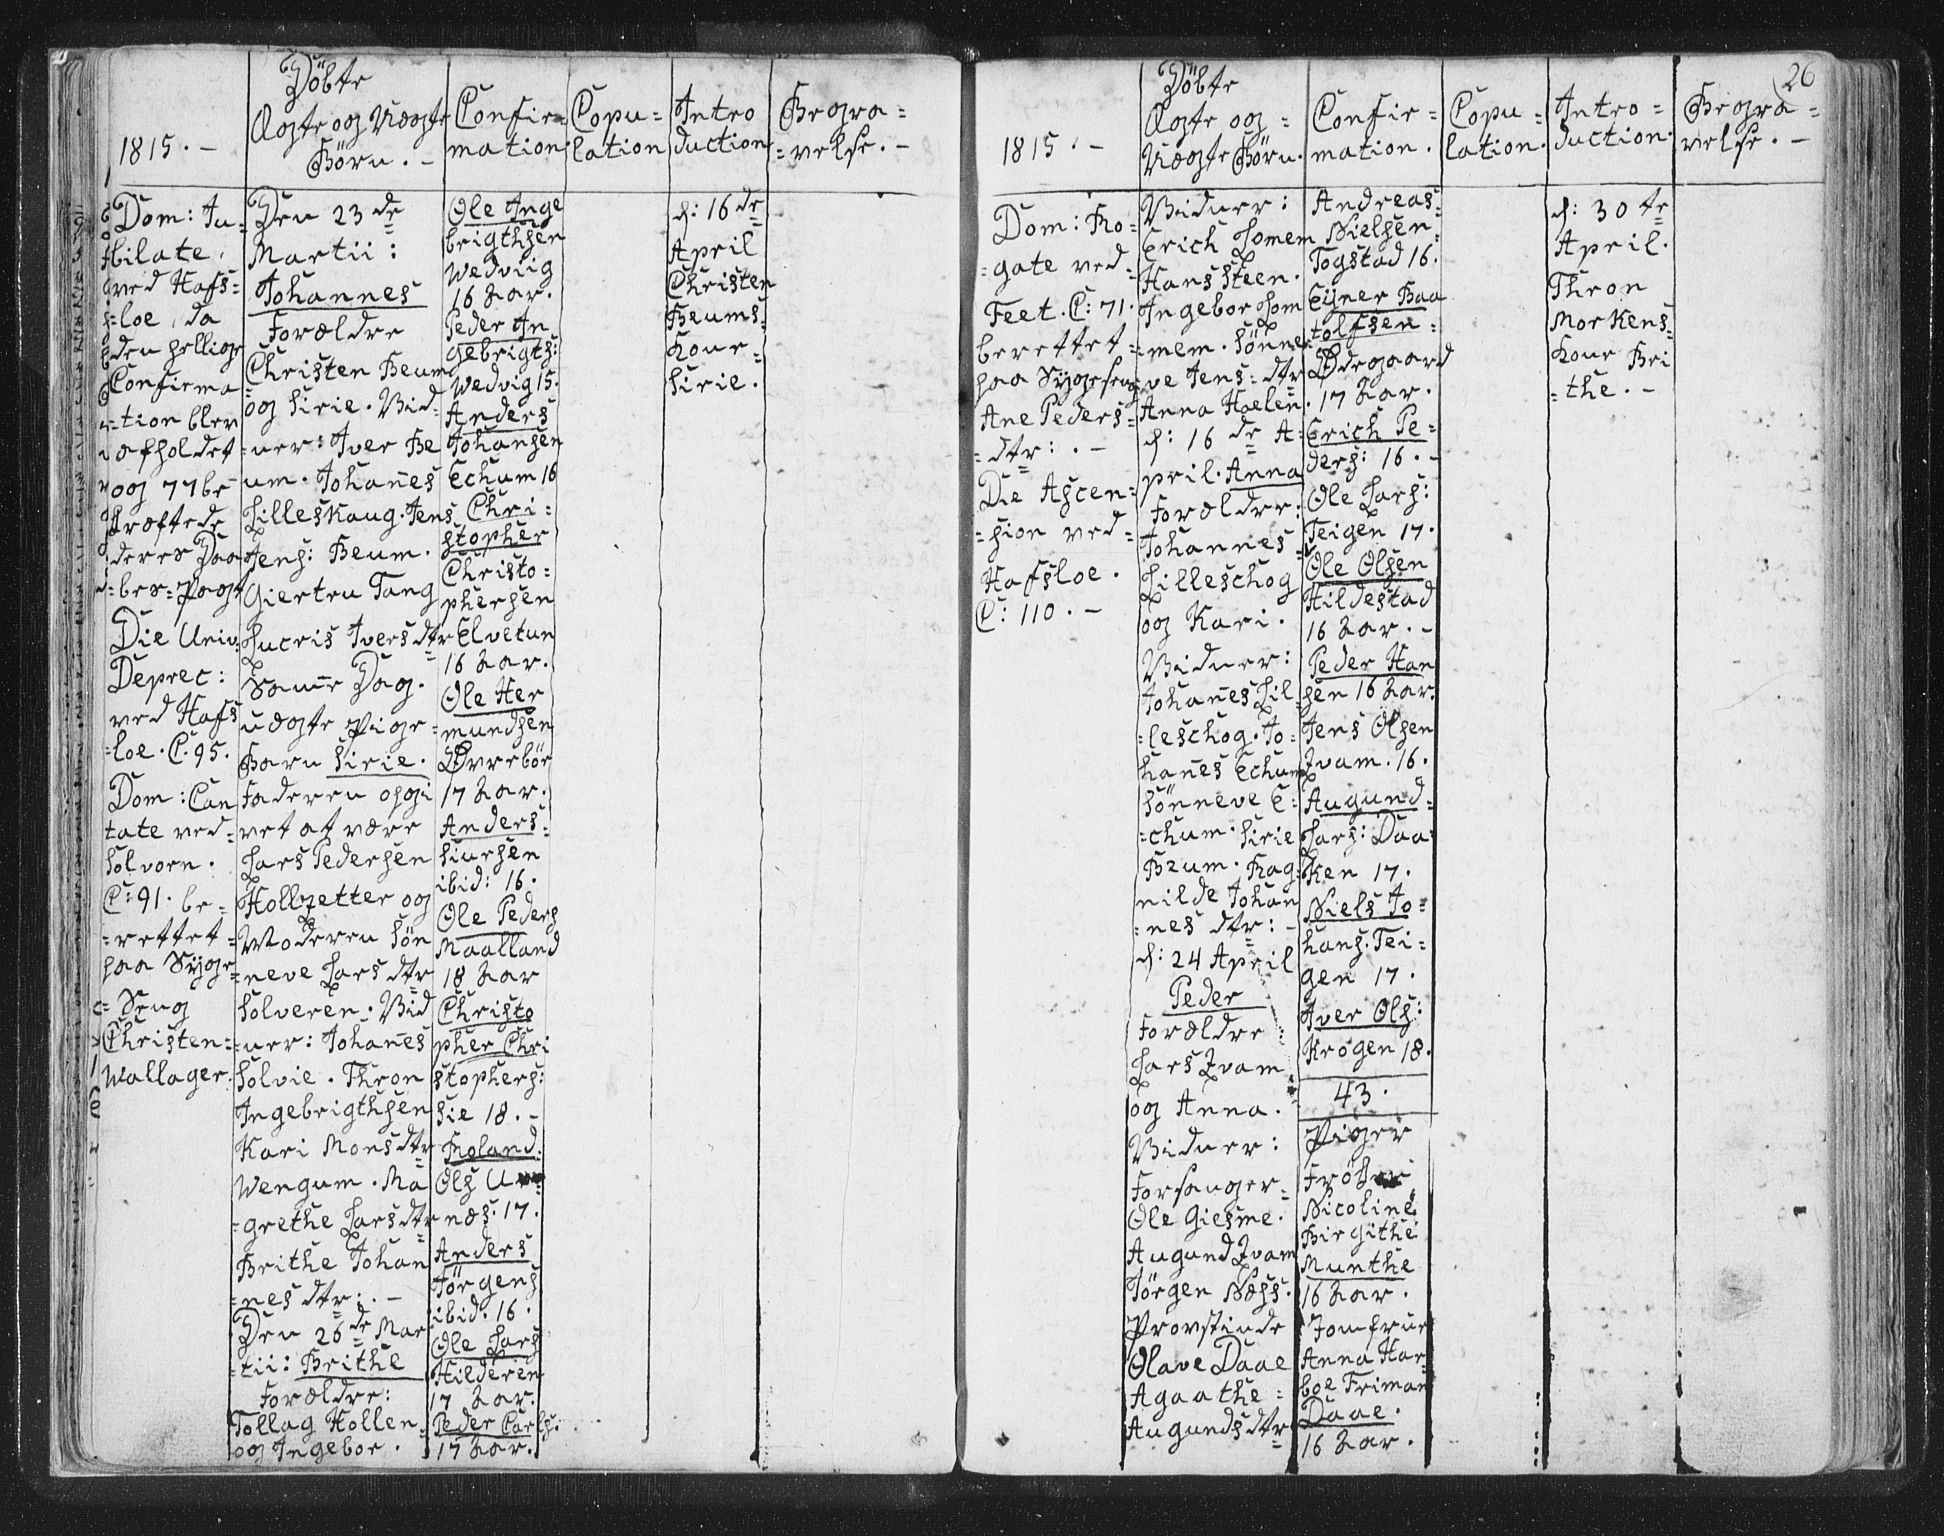 1815. -
Döbte
Ægte og Uægte
Börn. -
Confir=
mation
Copu=
lation
Intro
duction
Begra=
=velse. -
Dom: Ju=
bilate,
ved Hafs=
=loe, da
den hellige
Confirma
=tion blev
afholdet
og 77 be
kræftede
deres Daa
=bes=Pagt
Die Univ:
Deprec:
ved Hafs
=loe. C. 95.
Dom: Can
tate ved=
Solvorn.
C: 91. be=
=rettet=
paa Syge=
= Seng
Christen=
Wallager.
Den 23 de
Martii:
Johannes
Forældre
Christen Beum
og Sirie. Vid=
=ner: Iver Be
um. Johanes
Lilleskaug. Jens
Jens: Beum.
Giertru Tang
Lucris Ivers dtr
Samme Dag.
uægte Pige=
Barn Sirie.
Faderen opgi
vet at være
Lars Pedersen
Hollzetter og
Moderen Sön
=neve Lars dtr
Solveren. Vid
=ner: Johanes
Solvie. Thron
Ingebrigthsen
Kari Mons dtr
Wengum. Ma
=grethe Lars dtr
Brithe Johan
=nes dtr: . -
Den 26 de Mar
=tii: Brithe
Forældre:
Tollag Hollen=
og Ingebor.
Ole Inge
brigthsen
Wedviig
16 Aar.
Peder In
gebrigts:
Wedvig 15.
Anders
Johansen
Echum 16
Chri=
stopher
Christo=
phersen
Elvetun
16 Aar.
Ole Her
=mundsen
Øvrebör
17 Aar.
Anders=
Siursen
ibid: 16.
Ole Peders
Maalland
18 Aar
Christo
pher Chri
stophers:
Sie 18. -
Roland:
Ols
næs: 17.
Anders
Jörgens
ibid: 16.
Ole Lars
Hilderen
17 Aar.
Peder Carls:
17 Aar.
d: 16 de
April
Christen
Beums=
Kone=
Sirie.
26
1815. -
Döbte
Ægte og=
Uægte Börn.
Confir=
mation.
Copu=
lation.
Intro=
duction.
Begra=
velse. -
Dom: Ro=
=gate ved=
Feet. C: 71.
berettet=
paa Sygeseng
Ane Peders=
=dtr: . -
Die Ascen=
=sion ved=
Hafsloe.
C: 110. -
Vidner:
Erich Lomem
Hans Steen.
Ingebor Lom
=mem. Sönne
ve Jens=dtr
Anna Hoelen.
d: 16 de A=
pril. Anna
Forældre:
Johannes=
Lilleschog
og Kari.
Vidner:
Johanes Lil
=leschog. Jo=
hanes Echum
Sönneve E=
=chum. Sirie
Beum. Rag=
nilde Johan
=nes dtr: -
d: 24 April
Peder
Forældre:
Lars Qvam
og Anna.
Vidner:
Forsanger=
Ole Giesme.
Augund Qvam
Jörgen Næss.
Provstinde
Olave Daae
Agaathe=
Augunds dtr
Andreas=
Nielsen=
Togstad 16.
Ejner Baa
tolfsen=
Ødegaard
17 Aar.
Erich Pe=
ders: 16. -
Ole Lars:
Teigen 17.
Ole Olsen
Hildestad
16 Aar. -
Peder Han
sen 16 Aar.
Jens Olsen
Qvam. 16.
Augund=
Lars: Daa=
ken 17.
Niels Jo=
hans. Tei=
gen 17.
Iver Ols:
Krogen 18.
43.
Piger
Nicoline
Birgithe
Munthe
16 Aar.
Jomfrue
Anna Har
boe Friman
Daae.
16 Aar.
d: 30 te
April.
Thron
Morkens=
Kone Bri
=the. -